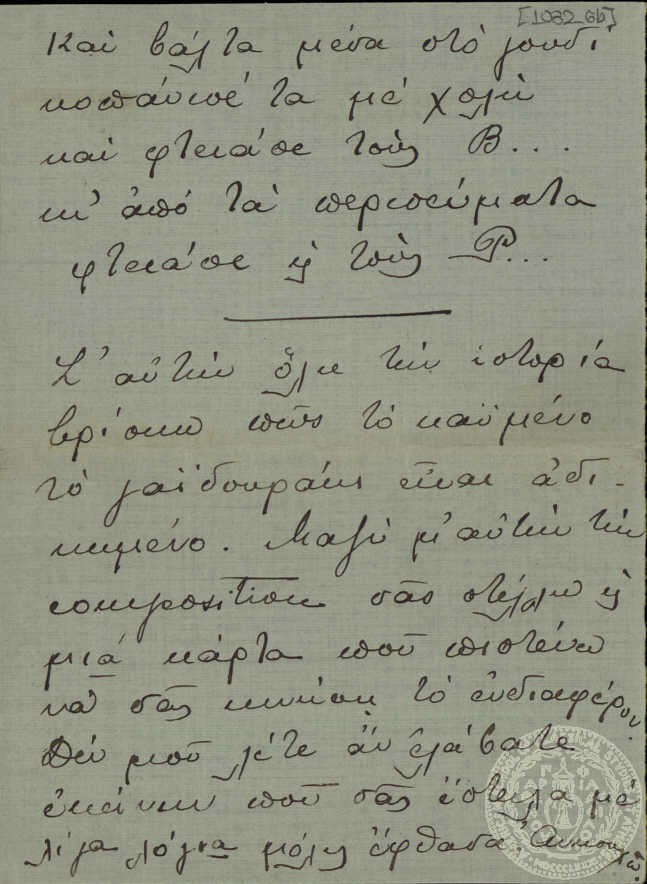 [1032_6b]
Καὶ βάλτα μέσα στὸ γουδὶ
κοπάνισέ τα μὲ χολὴ
καὶ φτειάσε τοὺς Β...
κι' ἀπὸ τὰ περισεύματα
φτειάσε κ τοὺς Ρ...
Σ' αὐτὴν ὅλη τὴν ἱστορία
βρίσκω πῶς τὸ καϋμένο
τὸ γαϊδουράκι εἶναι ἀδι-
κημένο. Μαζὺ μ' αὐτὴν τὴν
composition σᾶς στέλλω κ
μιὰ κάρτα ποῦ πιστεύω
νὰ σᾶς κινήση τὸ ἐνδιαφέρον.
Δέν μοῦ λέτε ἂν ἐλάβατε
ἐκείνην ποῦ σᾶς ἔστειλα μὲ
λίγα λόγια μόλις ἔφθασα. Ἀνησυχῶ.